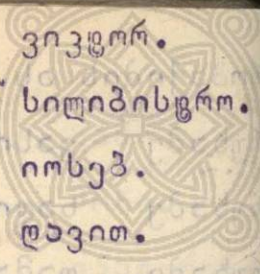 ვიკტორ.
სილიბისტრო.
იოსებ.
დავით.